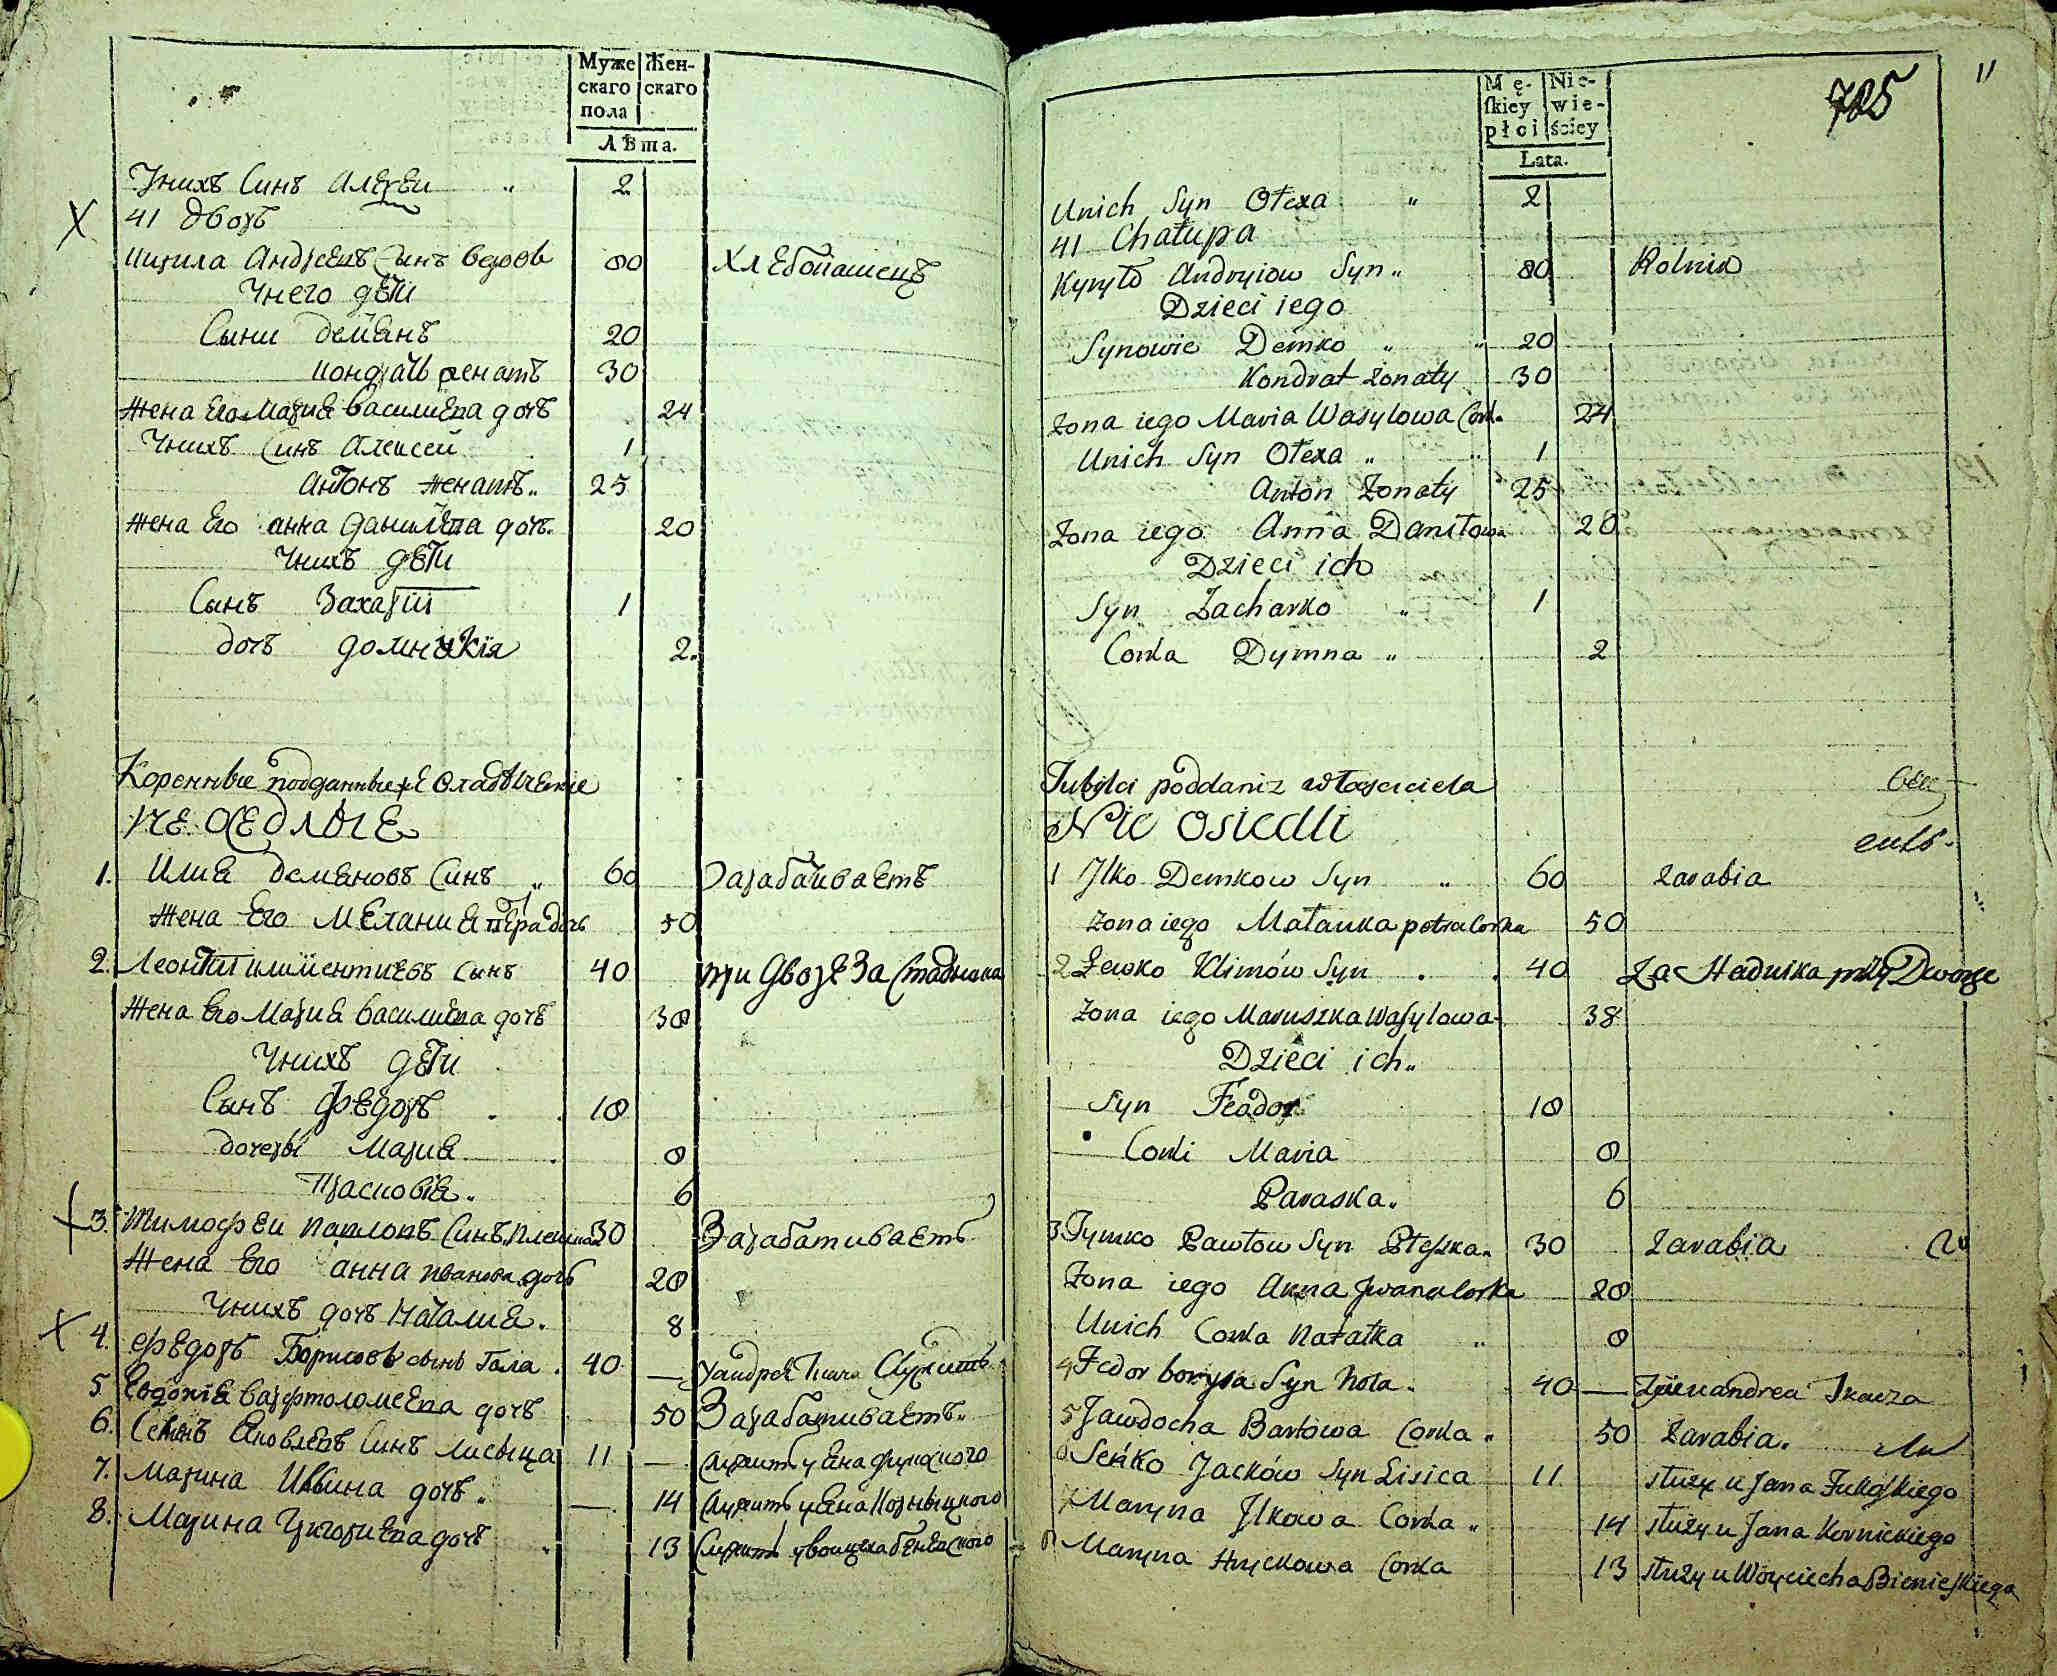 Муже Жен-
скаго скаго
пола
Лѣта.
Унихъ Синъ Алеѯеи " 2
X 41 дворъ
Кирила Андреевъ Синъ 80 Хлебопашецъ
Унего дѣти
Сыни Демѣянъ 20
Кондратъ женатъ 30
Жена Его Мариа Василиева дочъ 24
Унихъ Синъ Алексей 1
Антонъ женатъ 25
Жена Его анна данилова дочъ. 20
Унихъ дѣти
Сынъ Захарiи 1
дочъ домникiя 2.
Коренные подданные
не оседлые
1. Илиа Демяновъ Синъ „ 60 Зарабаиваетъ
Жена Его Мелания дочь 50
2. Леонтiи Сынъ 40 при дворе За Стадника
Жена Его Мариа Василиева дочъ 38
Унихъ дѣти
Сынъ Федоръ 18
дочеры Мариа 8
Прасковiа. 6
3. Тимофеи Павловъ Синъ 30 Зарабативаетъ
Жена Его анна Иванова дочъ 28
Унихъ дочъ Наталиа. 8
X 4. Федоръ Борисовъ сынъ Гала. 40. — Служитъ
5 Евдокiа Варфоломеева дочъ 50 Зарабативаетъ..
6. Семенъ Яковлевъ Синъ лисыца 11 —
7. Марина Ильина дочъ. — 14
8. Марина Григориева дочъ 13
Mę- Nie-
skiey wie-
płci ściey
Lata.
725
11
Unich Syn Ołexa " 2
41 Chałupa
Kyryło Andryiow Syn " 80 Rolnik
Dzieci iego
Synowie Demko " 20
Kondrat żonaty 30
żona iego Maria Wasylowa Cork. 24
Unich Syn Ołexa " 1
Anton żonaty 25
żona iego Anna Daniłowa 20
Dzieci ich
Syn Zacharko " 1
Corka Dymna " 2
Tubylci poddani z właściciela
Nie osiedli
1 Ilko Demkow Syn " 60 zarabia
żona iego Małanka petra Corka 50
2 Lewko Klimów Syn . . 40 za Stadnika przy Dworze
żona iego Maruszka Wasylowa 38
Dzieci ich..
Syn Feador 18
Corki Maria 8
Paraska. 6
3 Tymko Pawłow Syn Pleszka. 30 zarabia
żona iego Anna Iwana Corka 28
Unich Corka Natałka " 8
4 Fedor borysa Syn Hola. 40 —
5 Jawdocha Bartowa Corka " 50 zarabia.
6 Seńko Jacków Syn Lisica 11 służy u Jana Żukoskiego
7 Maryna Ilkowa Corka " 14 służy u Jana Kornickiego
8 Maryna Hryckowa Corka 13 służy u Woyciecha Bienieskiego